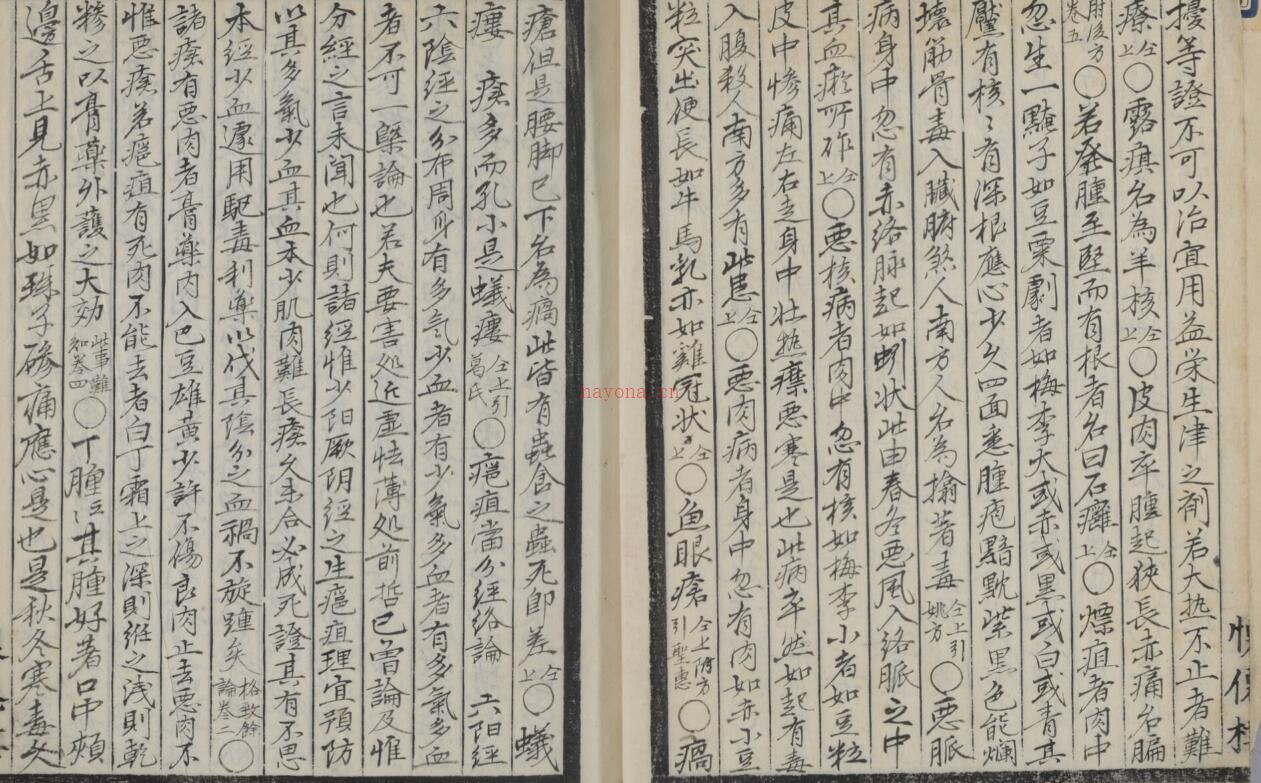 擾等證不可以治宜用益荣生津之剤若大热不止者難
療仝上〇露瘼名為羊核仝上〇皮肉卒腫起狹長赤痛名牑
肘後方卷五〇若發腫至堅而有根者名曰石癰仝上〇熛疽者肉中
忽生一黶子如豆粟劇者如梅李大或赤或黑或白或青其
黶有核〻有深根應心少久四面悉腫疱黯黕紫黑色能爛
壊筋骨毒入臓腑煞人南方人名為搨著毒仝上引姚方〇悪脈
病身中忽有赤络脉起如蚓状此由春冬悪風入络脈之中
其血瘀所作仝上〇悪核病者肉中忽有核如梅李小者如豆粒
皮中惨痛左右走身中壮热瘮悪寒是也此病卒然如起有毒
入腹殺人南方多有此患仝上〇悪肉病者身中忽有肉如赤小豆
粒突出便長如牛馬乳亦如雞冠状仝上〇魚眼瘡仝上附方引聖惠〇瘑
瘡但是腰脚已下名為瘑此皆有蟲食之蟲死即差仝上〇蟻
瘻 瘡多而孔小是蟻瘻仝上引葛氏〇癰疽當分経络論 六陽経
六陰経之分布周身有多気少血者有少氣多血者有多氣多血
者不可一槩論也若夫要害処近虚怯薄処前哲已曽論及惟
分経之言未聞也何則諸経惟少阳厥阴経之生癰疽理宜預防
以其多氣少血其血本少肌肉難長瘡久未合必成死證其有不思
本経少血遽用駃毒利藥以伐其陰分之血禍不旋踵矣格致餘論卷二〇
諸瘡有悪肉者膏藥内入巴豆雄黄少許不傷良肉止去悪肉不
惟悪瘡若癰疽有死肉不能去者白丁霜上之深則絍之浅則乾
糝之以膏藥外護之大効此事難知卷四〇丁腫證其腫好著口中頰
邊舌上見赤黒如珠子磣痛應心是也是秋冬寒毒久